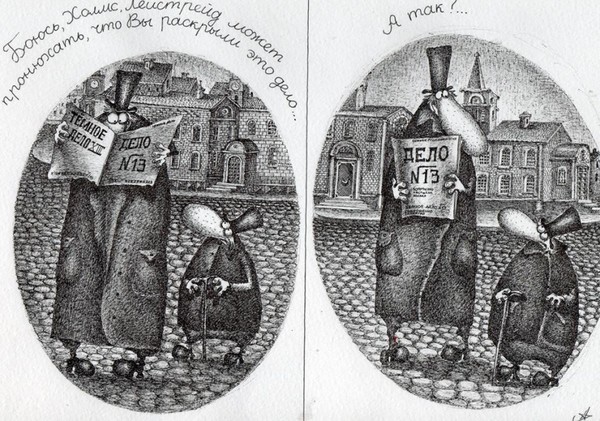 Боюсь, Холмс, Лейстрейд может
пронюхать, что Вы раскрыли это дело...
ТЁМНОЕ
ДЕЛО XIII
ДЕЛО
N13
А так?...
ДЕЛО
N13